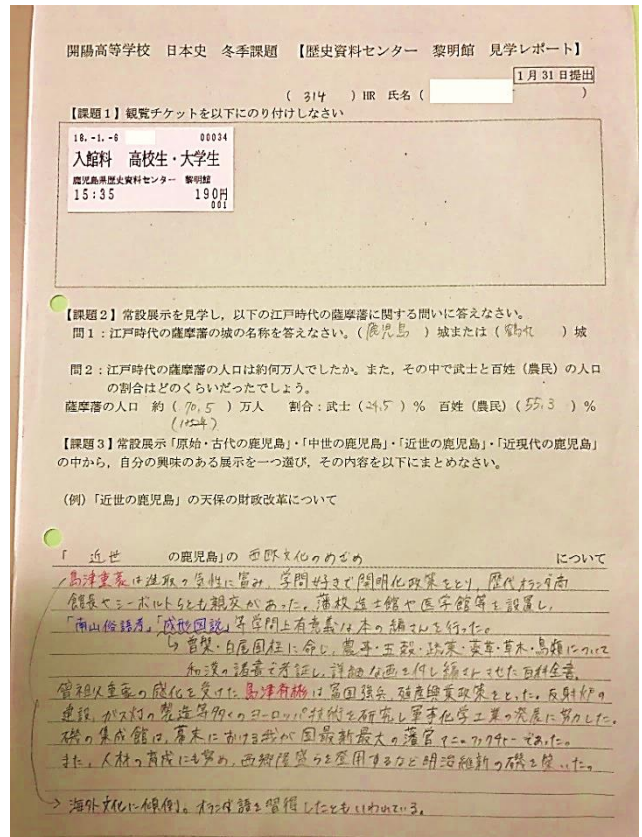 開陽高等学校 日本史 冬季課題 【歴史資料センター 黎明館 見学レポート】
1月31日提出
( 314 ) HR 氏名 ( )
【課題1】観覧チケットを以下にのり付けしなさい
18.-1.-6 00034
入館料 高校生・大学生
鹿児島県歴史資料センター 黎明館
15:35 190円
001
【課題2】常設展示を見学し,以下の江戸時代の薩摩藩に関する問いに答えなさい。
問1:江戸時代の薩摩藩の城の名称を答えなさい。(鹿児島 )城または(鶴丸 )城
問2:江戸時代の薩摩藩の人口は約何万人でしたか。また,その中で武士と百姓(農民)の人口
の割合はどのくらいだったでしょう。
薩摩藩の人口 約( 70.5 )万人 割合:武士(24.5 )% 百姓(農民)(55.3 )%
【課題3】常設展示「原始・古代の鹿児島」・「中世の鹿児島」・「近世の鹿児島」・「近現代の鹿児島」
の中から,自分の興味のある展示を一つ選び,その内容を以下にまとめなさい。
(例)「近世の鹿児島」の天保の財政改革について
「 近世 の鹿児島」の 西欧文化のめざめ について
島津重豪は進取の気性に富み、学問好きで開明化政策をとり、歴代オランダ商
館長やシーボルトらとも親交があった。藩校造士館や医学館等を設置し、
「南山俗語考」「成形図説」等学問上有意義な本の編さんを行った。
↳曽槃・白尾国柱に命じ、農事・五穀・蔬菜・薬草・草木・鳥類について
和漢の諸書で考証し、詳細な画を付し編さんさせた百科全書。
曽祖父重豪の感化を受けた島津斉彬は富国強兵、殖産興業政策をとった。反射炉の
建設、ガス灯の製造等多くのヨーロッパ技術を研究し軍事化学工業の発展に努力した。
磯の集成館は、幕末における我が国最新最大の藩営マニュファクチャーであった。
また、人材の育成にも努め、西郷隆盛らを登用するなど明治維新の礎を築いた。
→海外文化に傾倒。オランダ語を習得したともいわれている。